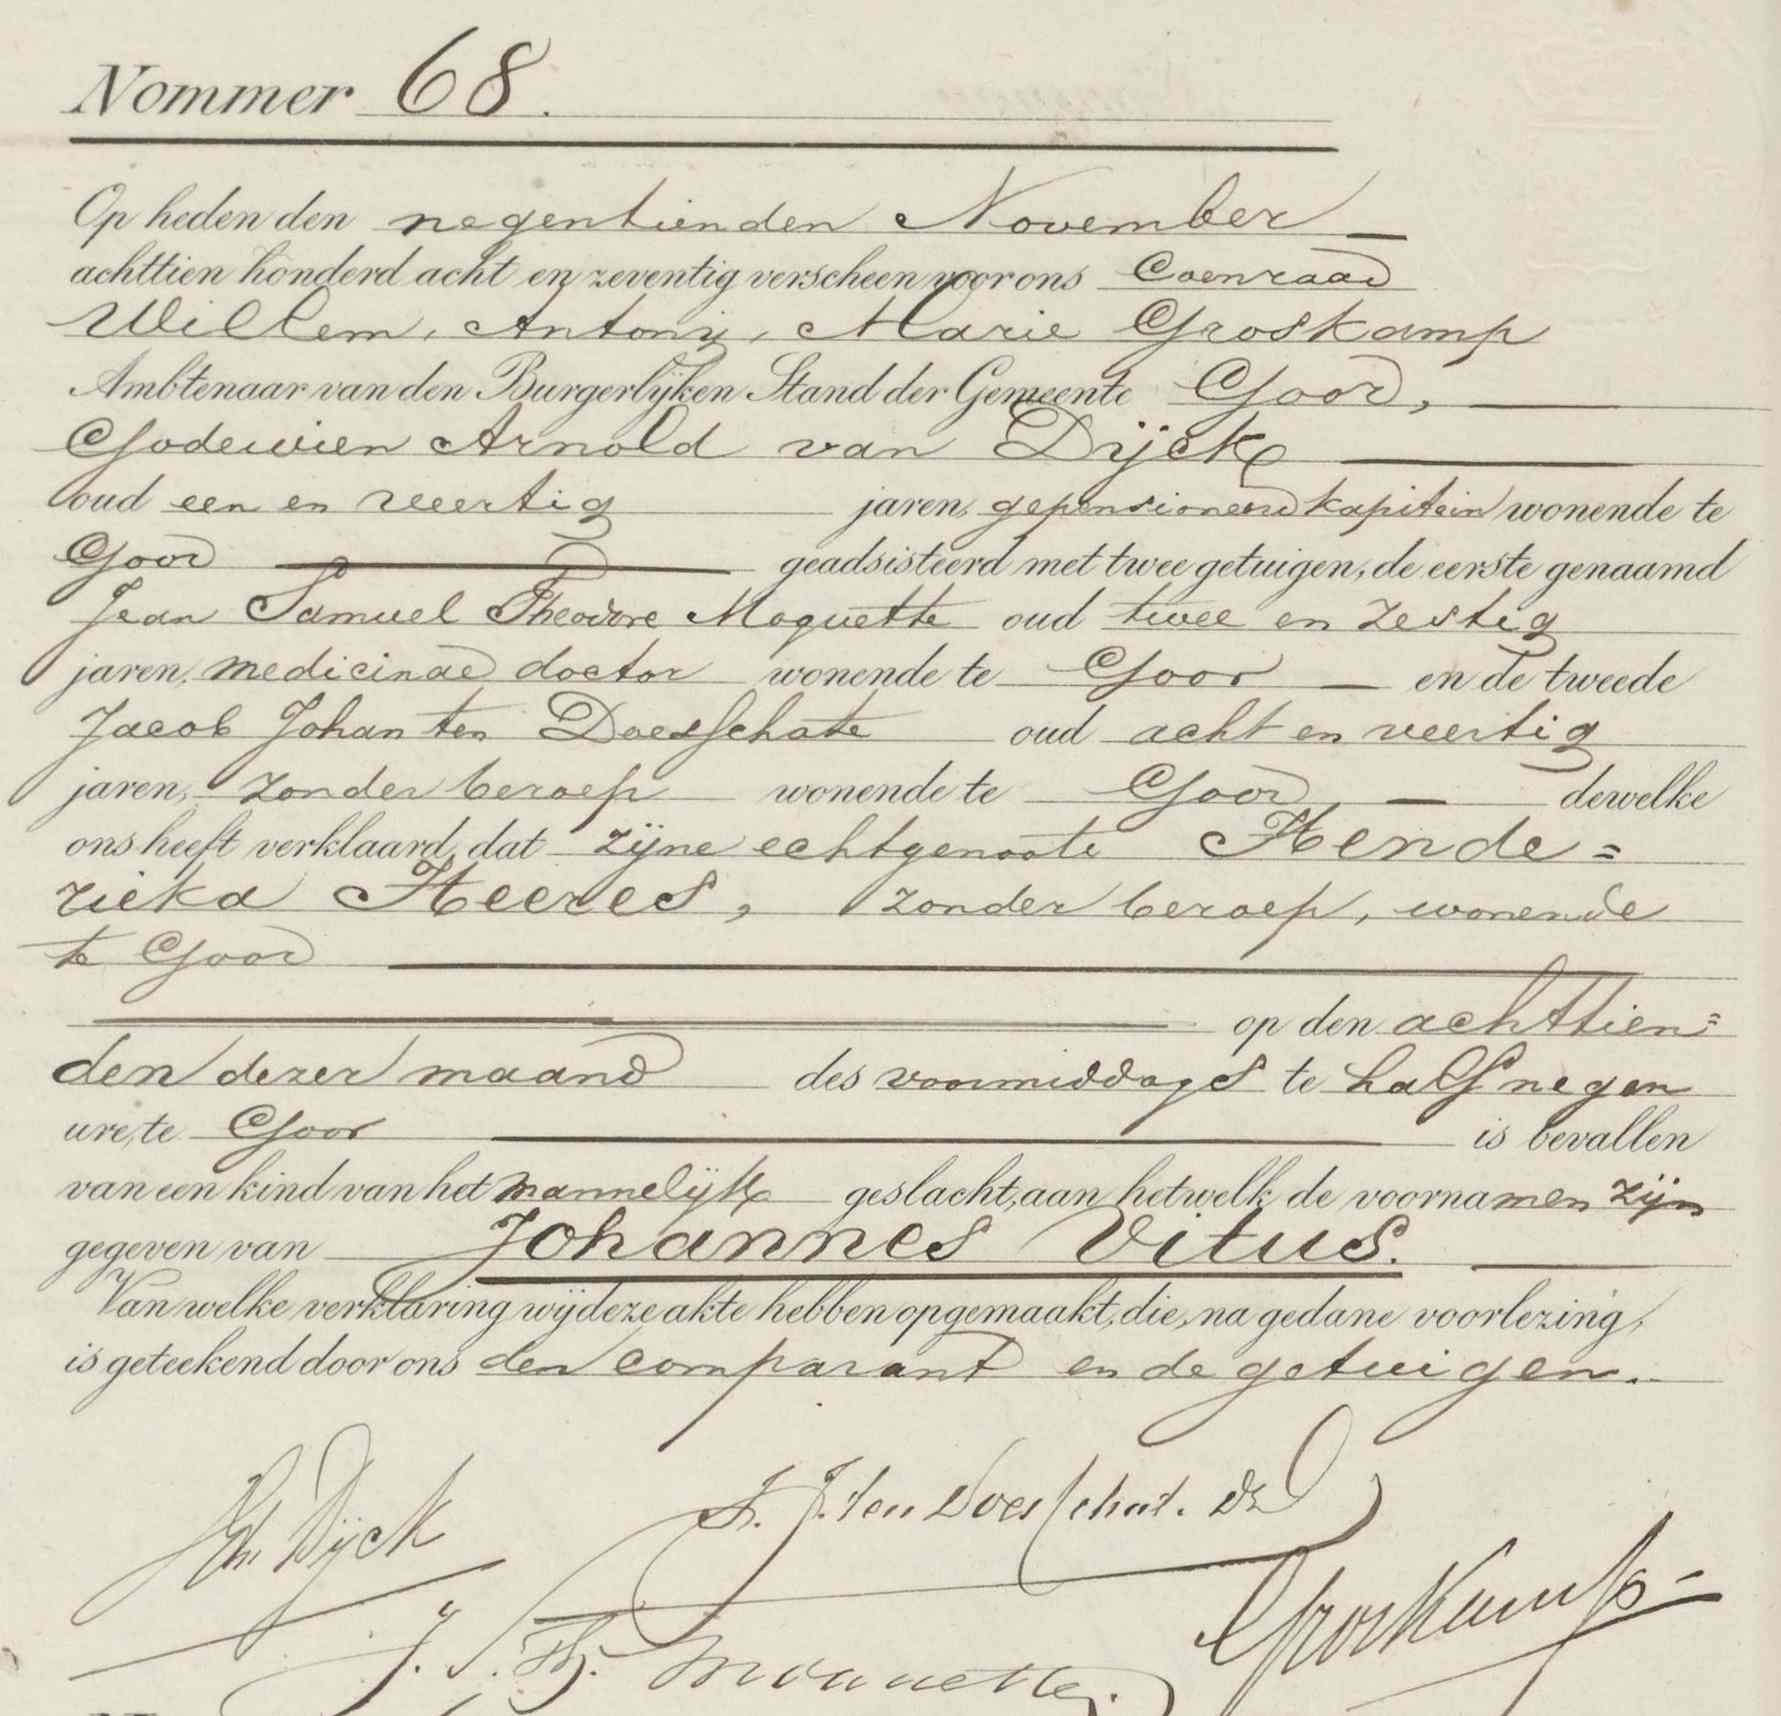 Nommer 68.
Op heden den negentienden November
achttien honderd acht en zeventig verscheen voor ons Coenraad
Willem, Antony, Marie Groskamp
Ambtenaar van den Burgerlijken Stand der Gemeente Goor,
Godewien Arnold van Dijck
oud een en veertig jaren, gepensioneerd kapitein wonende te
Goor geadsisteerd met twee getuigen, de eerste genaamd
Jean Samuel Theodore Moquette oud twee en zestig
jaren, medicinae doctor wonende te Goor en de tweede
Jacob Johan ten Doesschate oud acht en veertig
jaren, zonder beroep wonende te Goor dewelke
ons heeft verklaard, dat zijne echtgenoote Hende=
rieka Heeres, zonder beroep, wonende
te Goor
op den achttien=
den dezer maand des voormiddags te half negen
ure, te Goor is bevallen
van een kind van het mannelijk geslacht, aan hetwelk de voornamen zijn
gegeven van Johannes Vitus.
Van welke verklaring wij deze akte hebben opgemaakt, die, na gedane voorlezing,
is geteekend door ons den comparant en de getuigen.
Dijck
J. J. ten Doesschate. Dz
Groskamp
J. S. Th. Moquette.